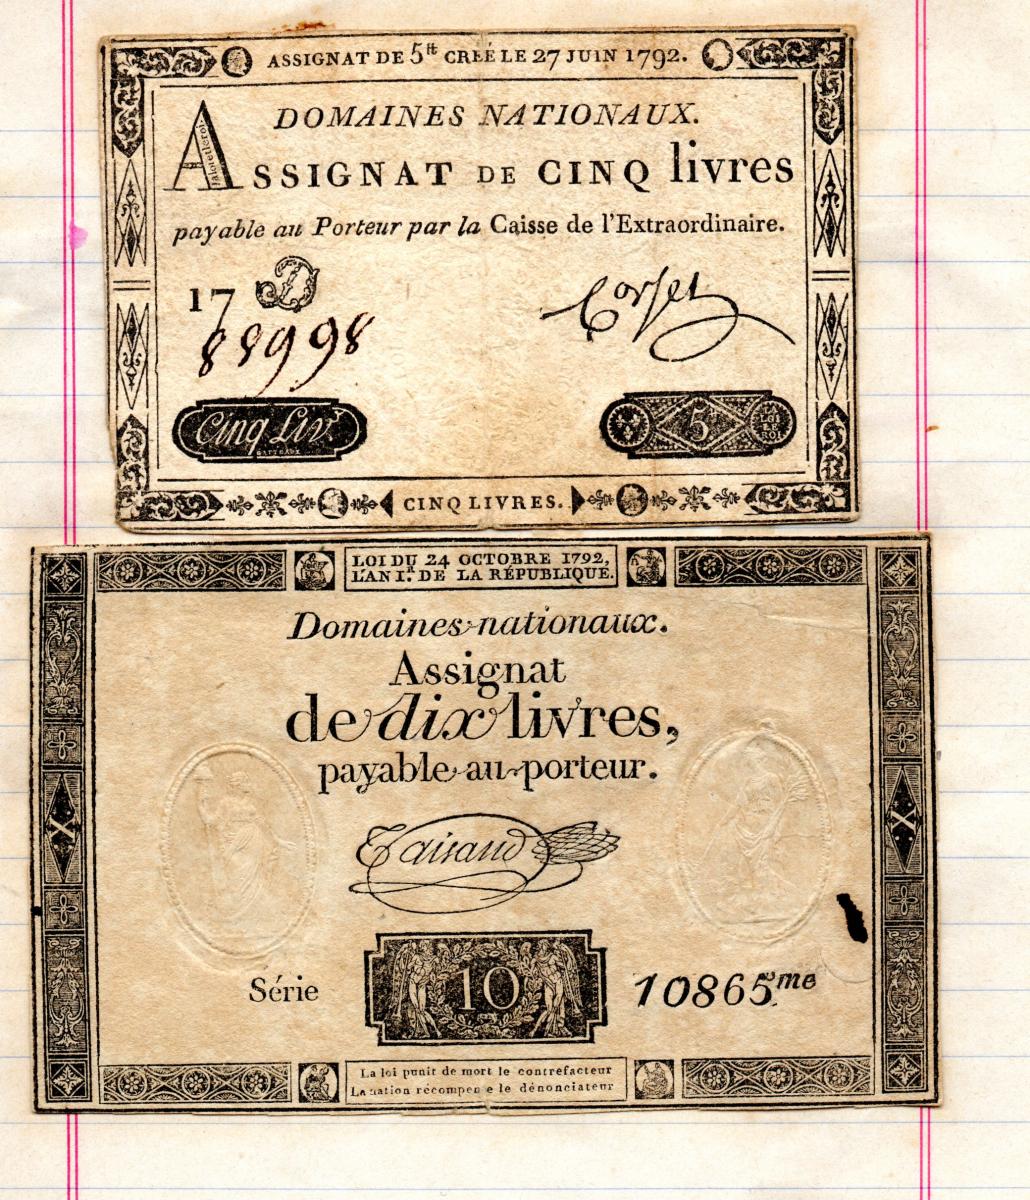 ASSIGNAT DE 5tt CRÉÉ LE 27 JUIN 1792.
DOMAINES NATIONAUX.
ASSIGNAT DE CINQ livres
payable au Porteur par la Caisse de l'Extraordinaire.
17 D
88998
Corsel
Cinq Liv.s
5
LA LOI
LE ROI
CINQ LIVRES.
LOI DU 24 OCTOBRE 1792,
L'AN I.R DE LA RÉPUBLIQUE.
Domaines nationaux.
Assignat
de dix livres,
payable au porteur.
X
X
Taisaud
Série
10
10865me
La loi punit de mort le contrefacteur
La nation récompen e le dénonciateur